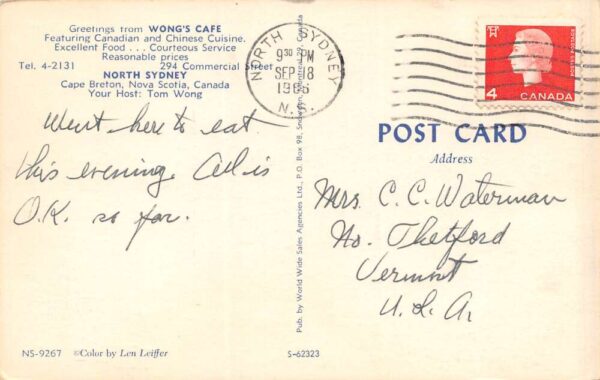 Greetings from WONG'S CAFE
Featuring Canadian and Chinese Cuisine.
Excellent Food . . . Courteous Service
Reasonable prices
Tel. 4-2131 294 Commercial Street
NORTH SYDNEY
Cape Breton, Nova Scotia, Canada
Your Host: Tom Wong
Went here to eat
this evening. All is
O.K. so far.
NS-9267 ©Color by Len Leiffer
Pub. by World Wide Sales Agencies Ltd., P.O. Box 98, Snowdon, Montreal 29, Canada
S-62323
NORTH SYDNEY
9 30 PM
SEP 18
N.S.
4
CANADA
POST CARD
Address
Mrs. C. C. Waterman
No. Thetford
Vermont
U.S.A.